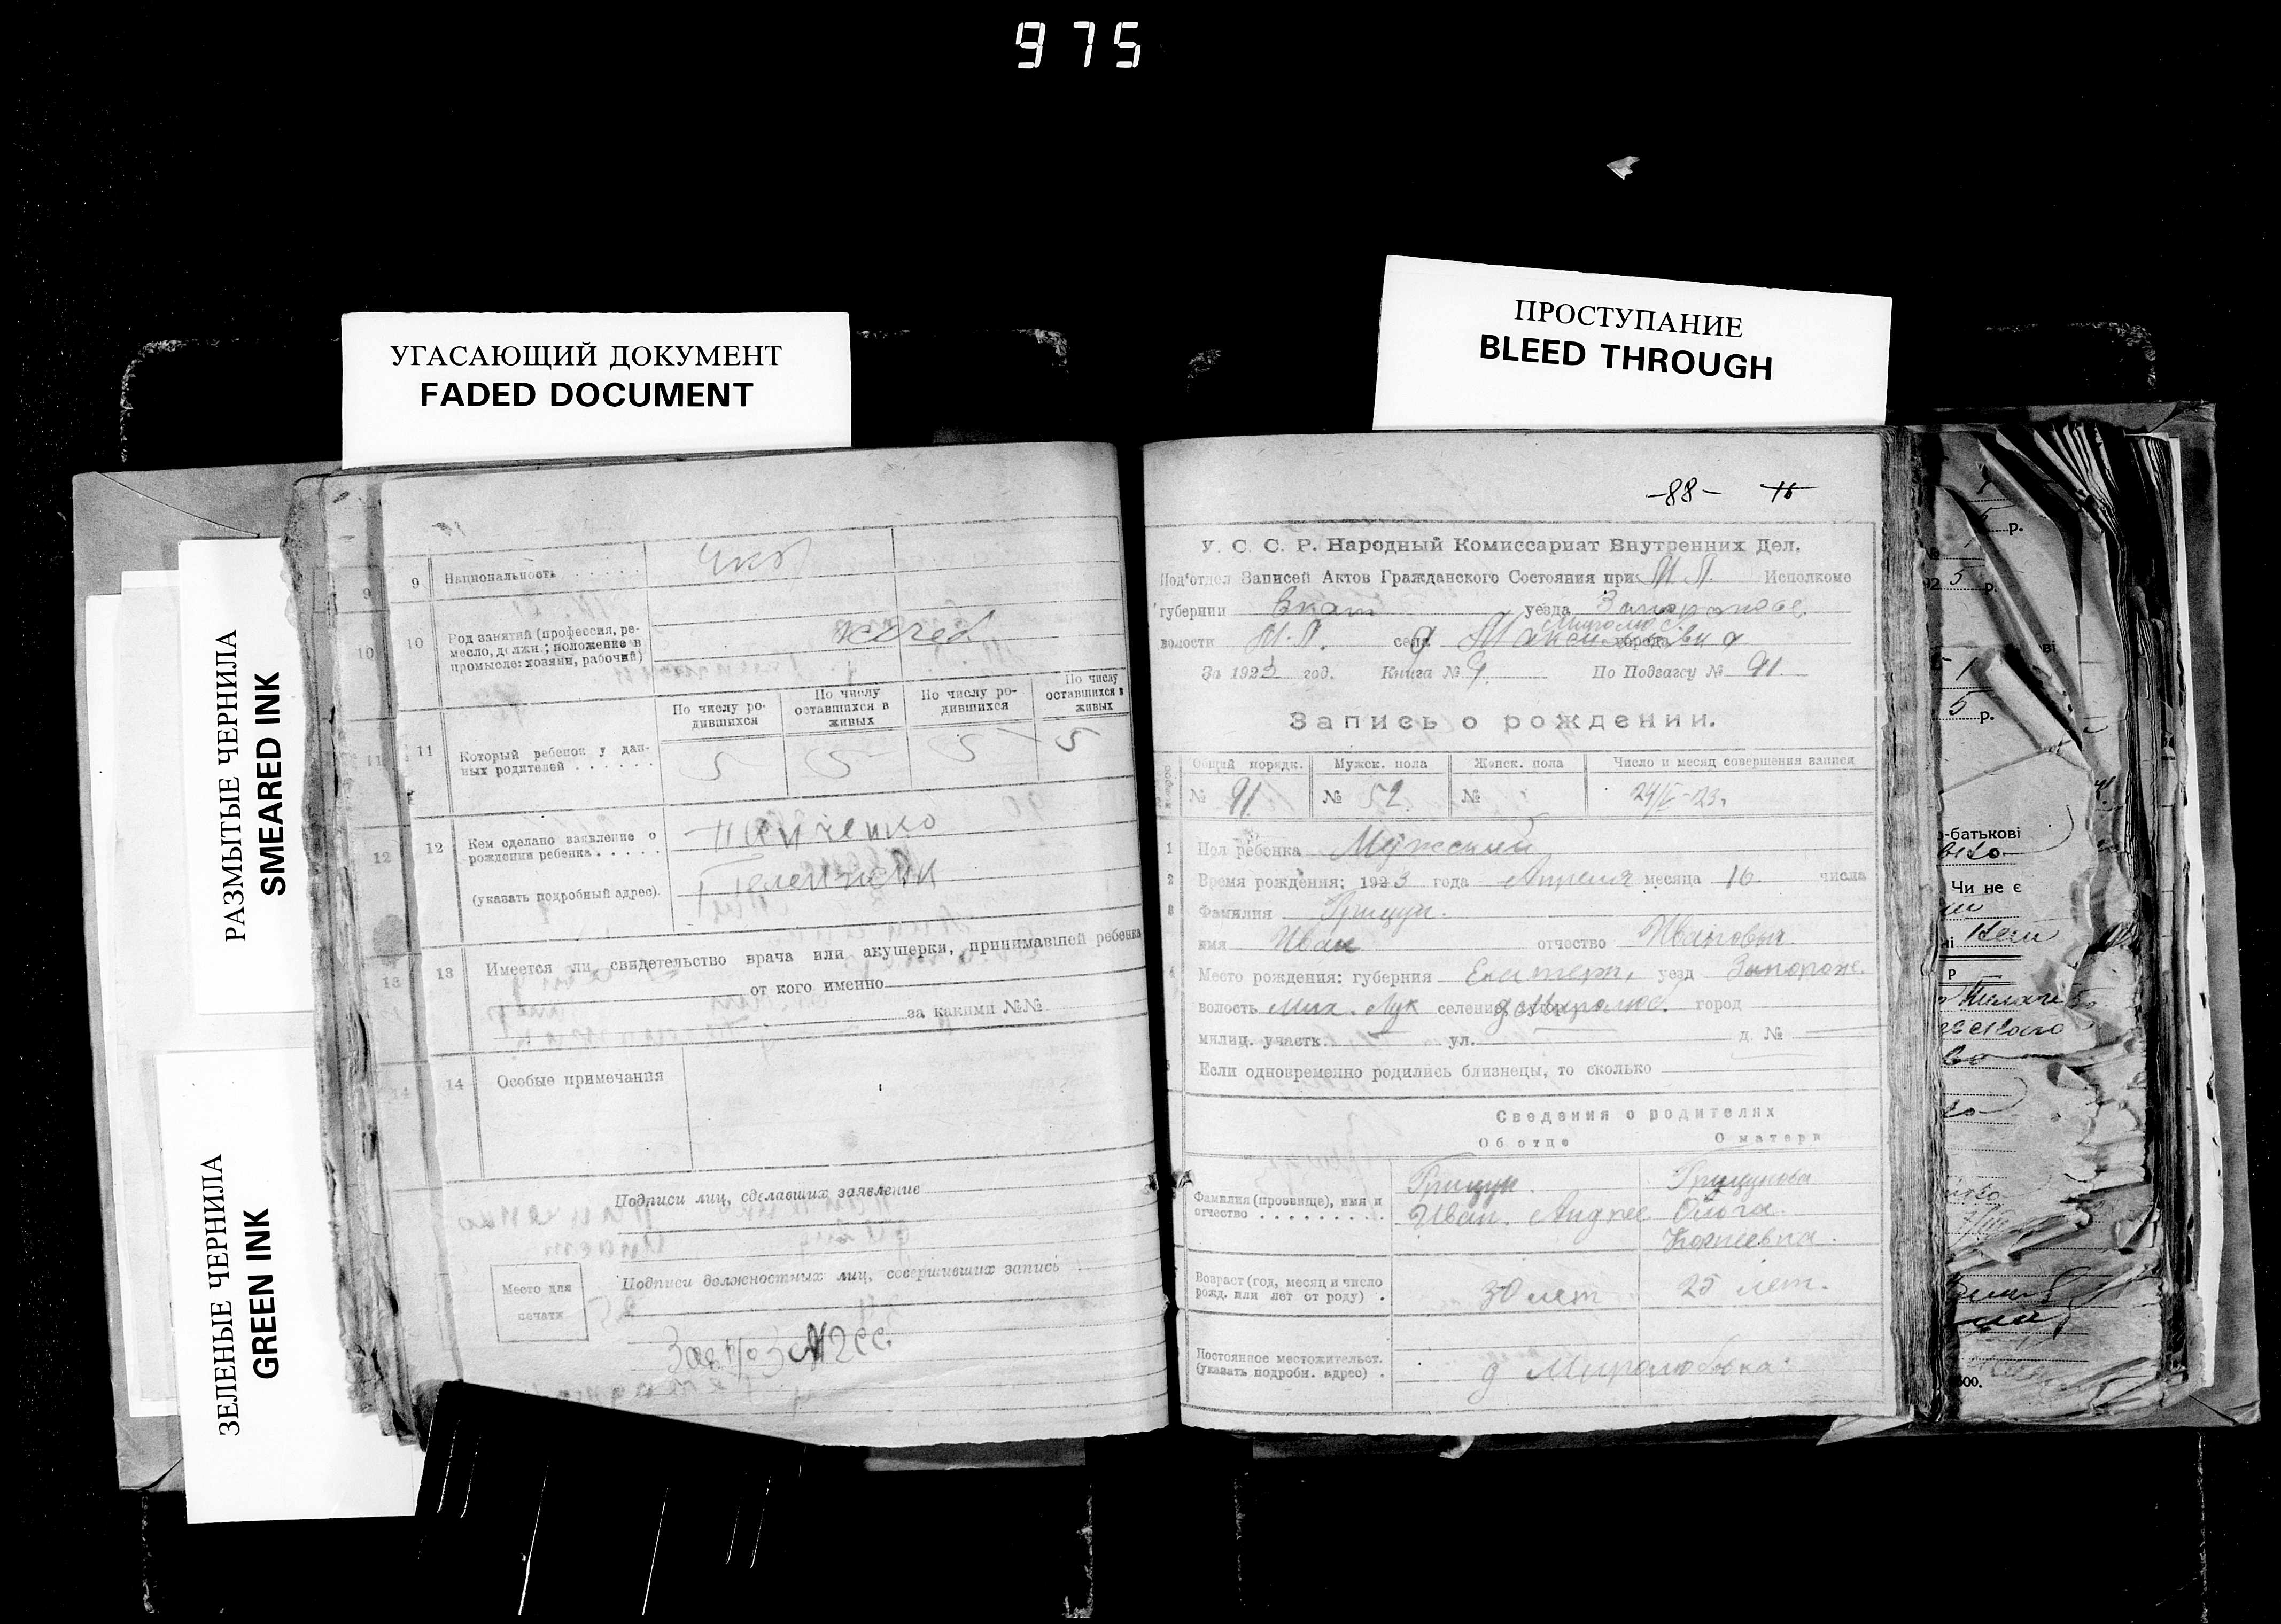 975
УГАСАЮЩИЙ ДОКУМЕНТ
FADED DOCUMENT
ПРОСТУПАНИЕ
BLEED THROUGH
РАЗМЫТЫЕ ЧЕРНИЛА
SMEARED INK
ЗЕЛЕНЫЕ ЧЕРНИЛА
GREEN INK
9 Национальность . . . . . . укр
10 Род занятий (профессия, ре-
месло, должн.; положение в
промысле: хозяин, рабочий)
По числу ро-
дившихся
По числу
оставшихся в
живых
По числу ро-
дившихся
По числу
оставшихся в
живых
11 Который ребенок у дан-
ных родителей . . . . . . . 5 5 5 5
12 Кем сделано заявление о
рождении ребенка . . . . .
(указать подробный адрес).
13 Имеется ли свидетельство врача или акушерки, принимавшей ребенка
от кого именно
за какими №№
14 Особые примечания
Подписи лиц, сделавших заявление
Подписи должностных лиц, совершивших запись
Место для
печати
-88- 16
У. С. С. Р. Народный Комиссариат Внутренних Дел.
Под'отдел Записей Актов Гражданского Состояния при М. Л. Исполкоме
губернии Екат уезда Запорожс.
волости М. Л. села города
За 1923 год. Книга № 9. По Подзагсу № 91.
Запись о рождении.
Общий порядк. Мужск. пола Женск. пола Число и месяц совершения записи
№ 91. № 52. № 24/IV-23.
1 Пол ребенка Мужской
2 Время рождения: 1923 года Апреля месяца 16. числа
3 Фамилия Грицун.
имя Иван отчество Иванович
4 Место рождения: губерния Екатер., уезд Запорож.
волость Мих. Лук селение д. Миролюб. город
милиц. участк. ул. д. №
Если одновременно родились близнецы, то сколько
Сведения о родителях
Об отце О матери
Фамилия (прозвище), имя и
отчество . . . . . . . . .
Грицун.
Иван. Андрее
Грицунова
Ольга.
Корнеевна.
Возраст (год, месяц и число
рожд. или лет от роду) . 30 лет 25 лет.
Постоянное местожительст.
(указать подробн. адрес) . д Миролюбовка.
р.
5 р.
5 р.
-батькові
Чи не є